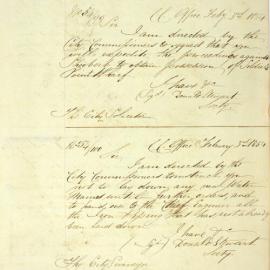 C Office Feby 3rd 1854
Sir
I am directed by the
City Commissioners to request that you
will expedite the proceedings against
to obtain possession of
Wharf
I have &c
Sgd
Secty
The City Solicitor
C Office February 3rd 1854
Sir,
I am directed by the
City Commissioners to instruct you
not to lay down any more Water
Mains until further orders, and
to send, one to the City Engineer all
the Iron Pipes that have not already
been laid down
I have &c
Sgd Donald Stewart
Secty
The City Surveyor